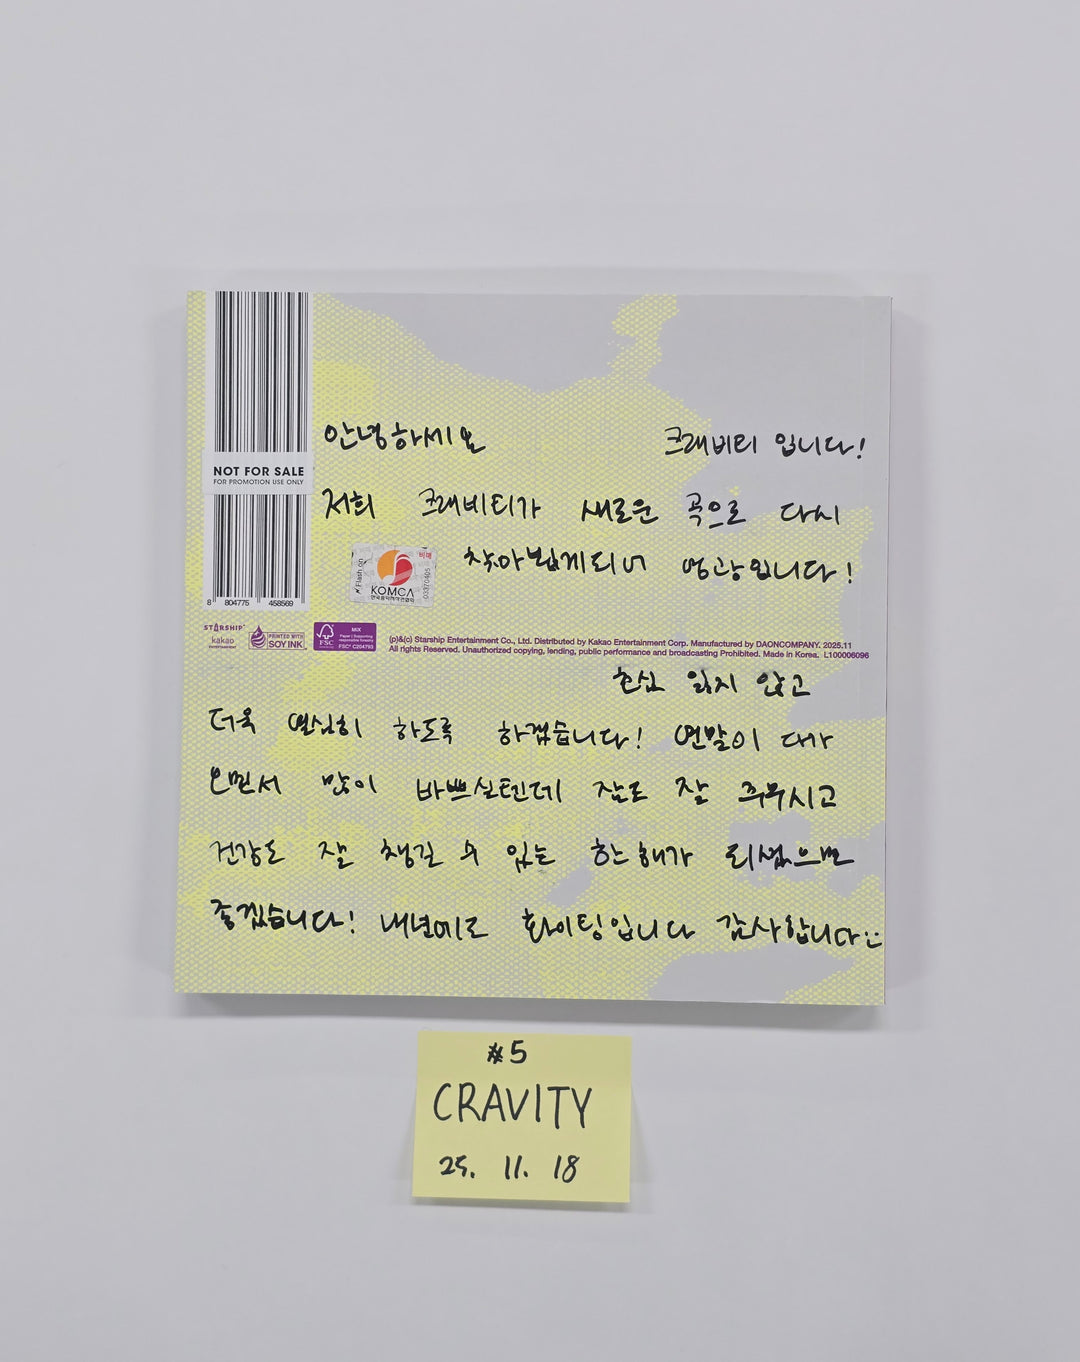 안녕하세요 크래비티 입니다!
NOT FOR SALE
FOR PROMOTION USE ONLY
저희 크래비티가 새로운 곡으로 다시
찾아뵙게되어 영광입니다!
Flash on
비매
KOMCA
한국음악저작권협회
03370405
8 804775 458569
STARSHIP
kakao
ENTERTAINMENT
PRINTED WITH
SOY INK
FSC
MIX
Paper | Supporting
responsible forestry
FSC® C204793
(p)&(c) Starship Entertainment Co., Ltd. Distributed by Kakao Entertainment Corp. Manufactured by DAONCOMPANY. 2025.11
All rights Reserved. Unauthorized copying, lending, public performance and broadcasting Prohibited. Made in Korea. L100006096
초심 잃지 않고
더욱 열심히 하도록 하겠습니다! 연말이 다가
오면서 많이 바쁘실텐데 잠도 잘 주무시고
건강도 잘 챙길 수 있는 한해가 되셨으면
좋겠습니다! 내년에도 화이팅입니다 감사합니다:)
#5
CRAVITY
25. 11. 18